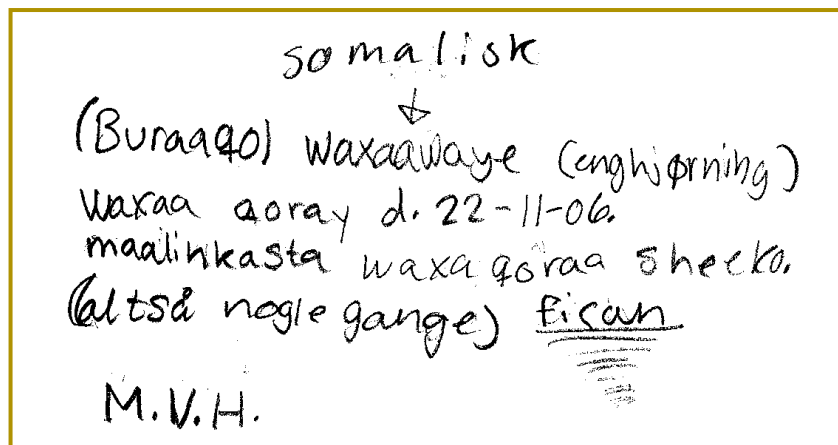 somalisk
(Buraaqo) waxaawaye (enghjørning)
waxaa qoray d. 22-11-06.
maalinkasta waxa qoraa sheeko.
(altså nogle gange) fican
M.V.H.